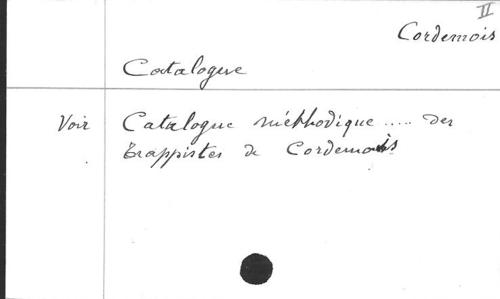 II
Cordemois
Catalogue
Voir Catalogue méthodique ..... des
Trappistes de Cordemois